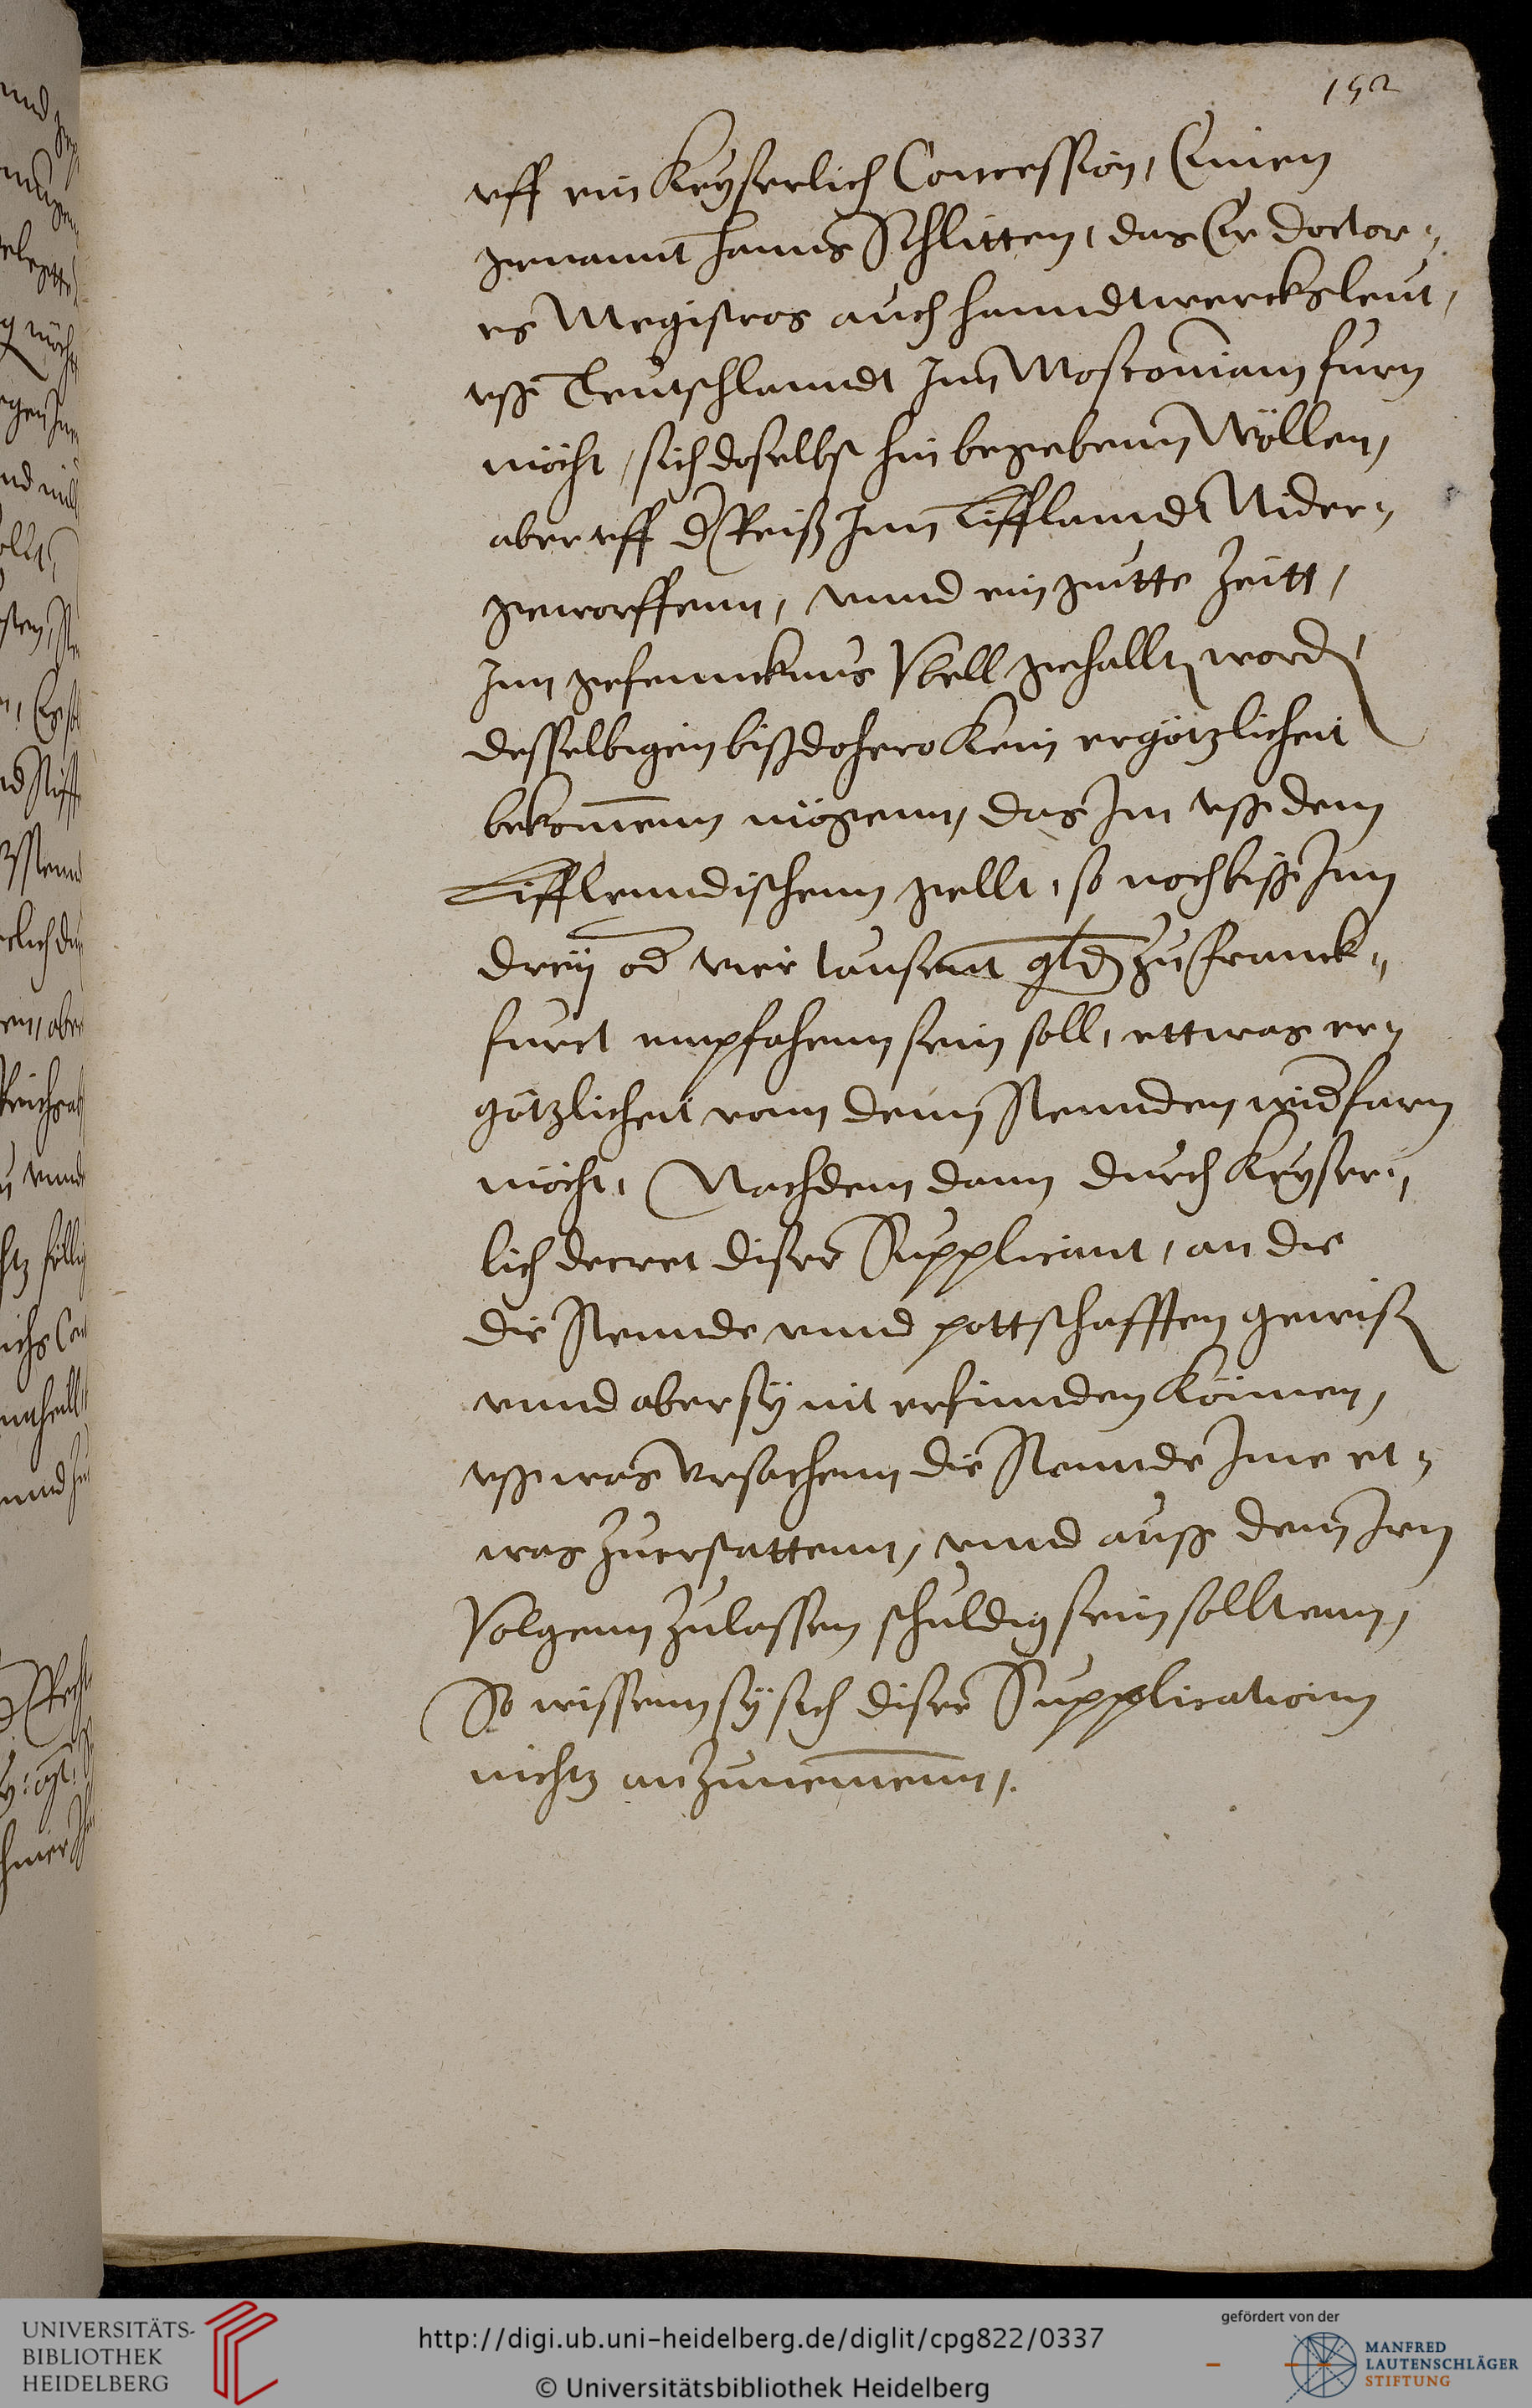 152
vff ein Keyserlich Concession, Einen
genannt hanns Schlitten, das Er doctor„
es Megistros auch hanndtwercksleut,
vsse Teutschlanndt Inn Mosconiam furn
möcht, sich doselbst hin begebenn Wöllen,
aber vff d Reiß Inn Lifflanndt Nider„
geworffenn, vnnd ein gutte Zeitt,
Inn gefenncknus Vbell gehalltt word
desselbigen bißdohero Kein ergötzlicheit
bekomenn mögenn, das Im vsse dem
Lifflenndischenn gellt, so noch bisse Inn
dreÿ od vier tausennt gld Zu Franck„
furt empfahenn sein soll, ettwas er„
götzlicheit vonn denn Stennden widfarn
möcht, Nachdem dann durch Keyser„
lich decret diser Supplicant, an die
die Stennde vnnd pottschafften gewisß
vnnd aber sÿ nit erfinnden Können,
vsse was Vrsachenn die Stennde Ime et„
was Zuerstattenn, vnnd ausse denn Irn
Volgenn Zulassen schuldig sein solltenn,
So wissenn sÿ sich diser Supplicationn
nichtz anzunemenn,.
UNIVERSITÄTS-
BIBLIOTHEK
HEIDELBERG
http://digi.ub.uni-heidelberg.de/diglit/cpg822/0337
© Universitätsbibliothek Heidelberg
gefördert von der
MANFRED
LAUTENSCHLÄGER
STIFTUNG